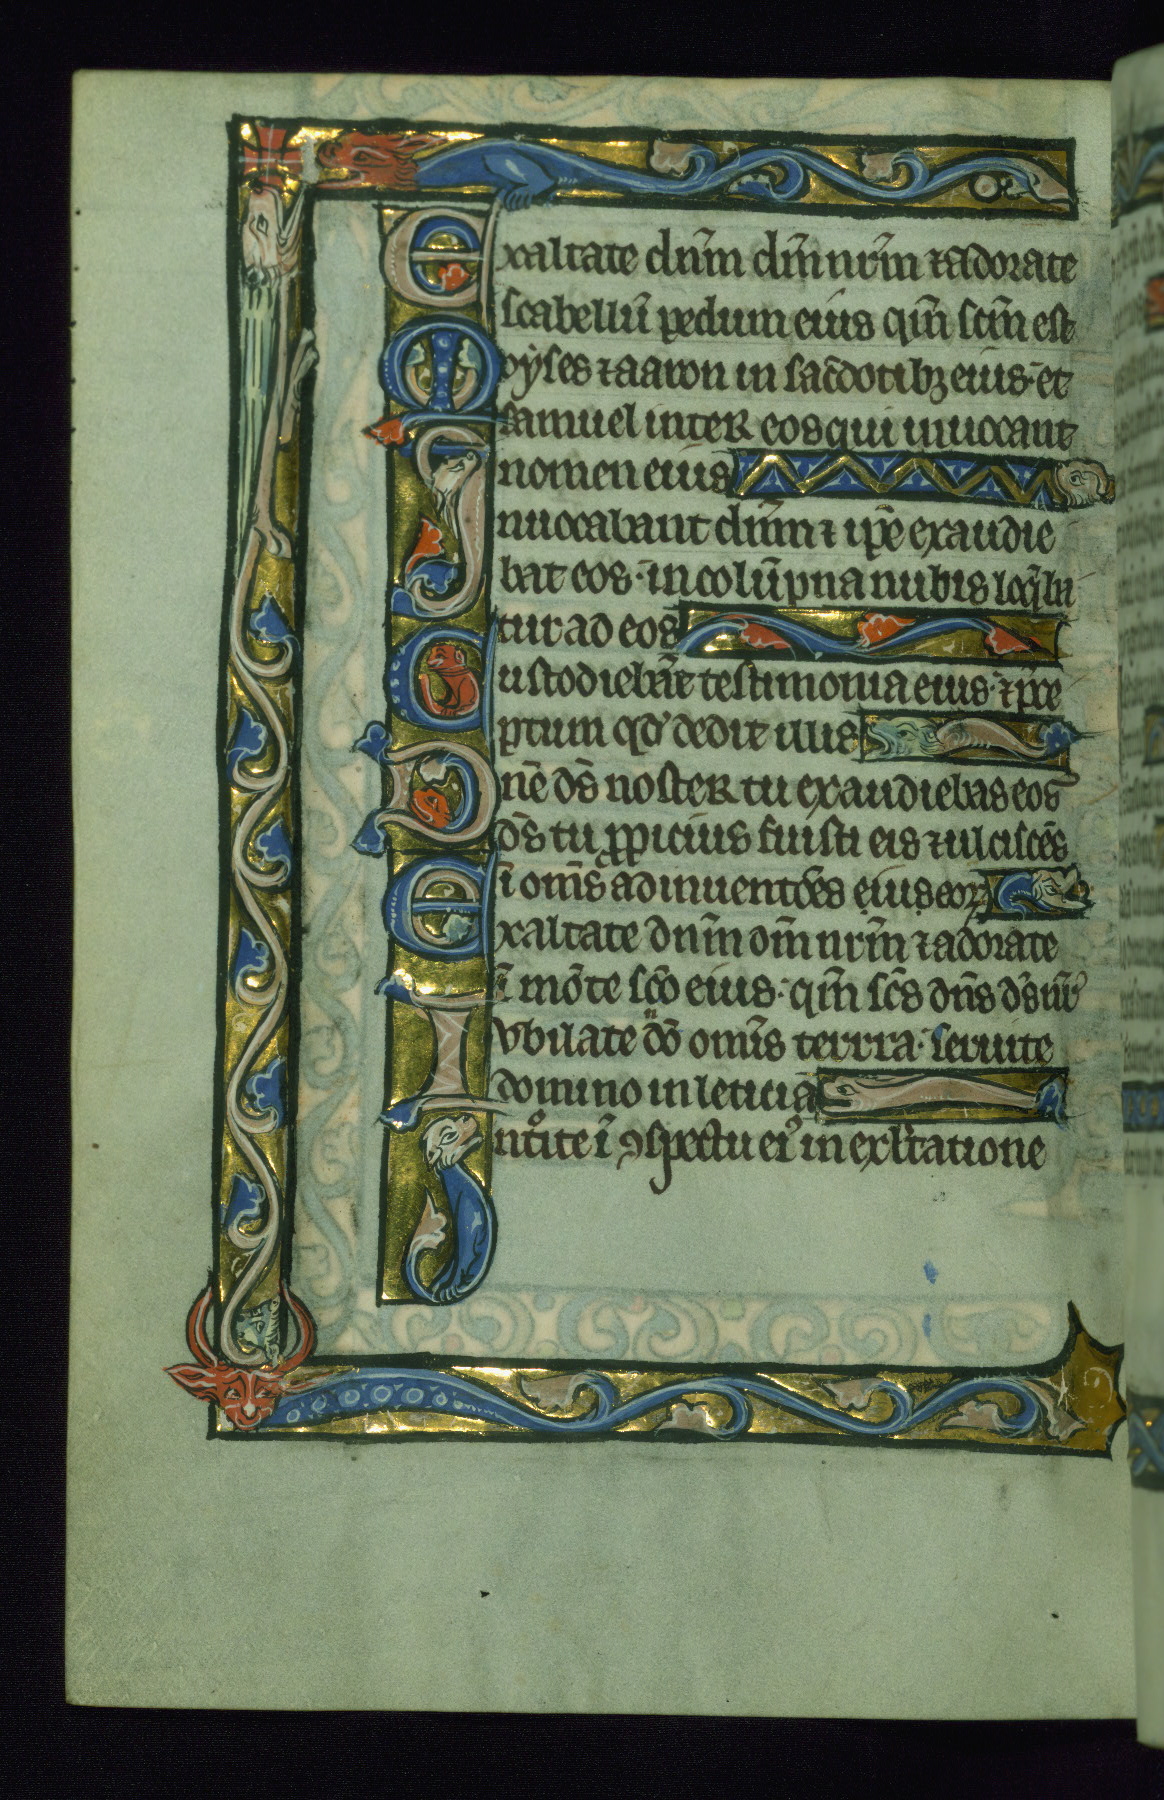 Exaltate dn̄m dm̄ nr̄m ⁊ adorate
scabellū pedum eius qm̄ scm̄ est
Moẏses ⁊ aaron in sac̄dotibꝫ eius· et
samuel inter eos qui inuocant
nomen eius
Inuocabant dn̄m ⁊ ip̄e exaudie
bat eos· in colūpna nubis loq̄ba
tur ad eos
Custodiebāt testimonia eius· ⁊ p̄ce
ptum qd̕ dedit illis
Dn̄e ds̄ noster tu exaudiebas eos
ds̄ tu ꝓpicius fuisti eis ⁊ ulciscēs
ī om̄s adinuentōes eius eoꝝ
Exaltate dn̄m dm̄ nr̄m ⁊ adorate
ī mōte sc̄o eius· qm̄ sc̄s dn̄s ds̄ nr̄
Iubilate dō om̄is terra· seruite
domino in leticia
Intͦite ī ꝯspectu ei᷒ in exl̄tatione